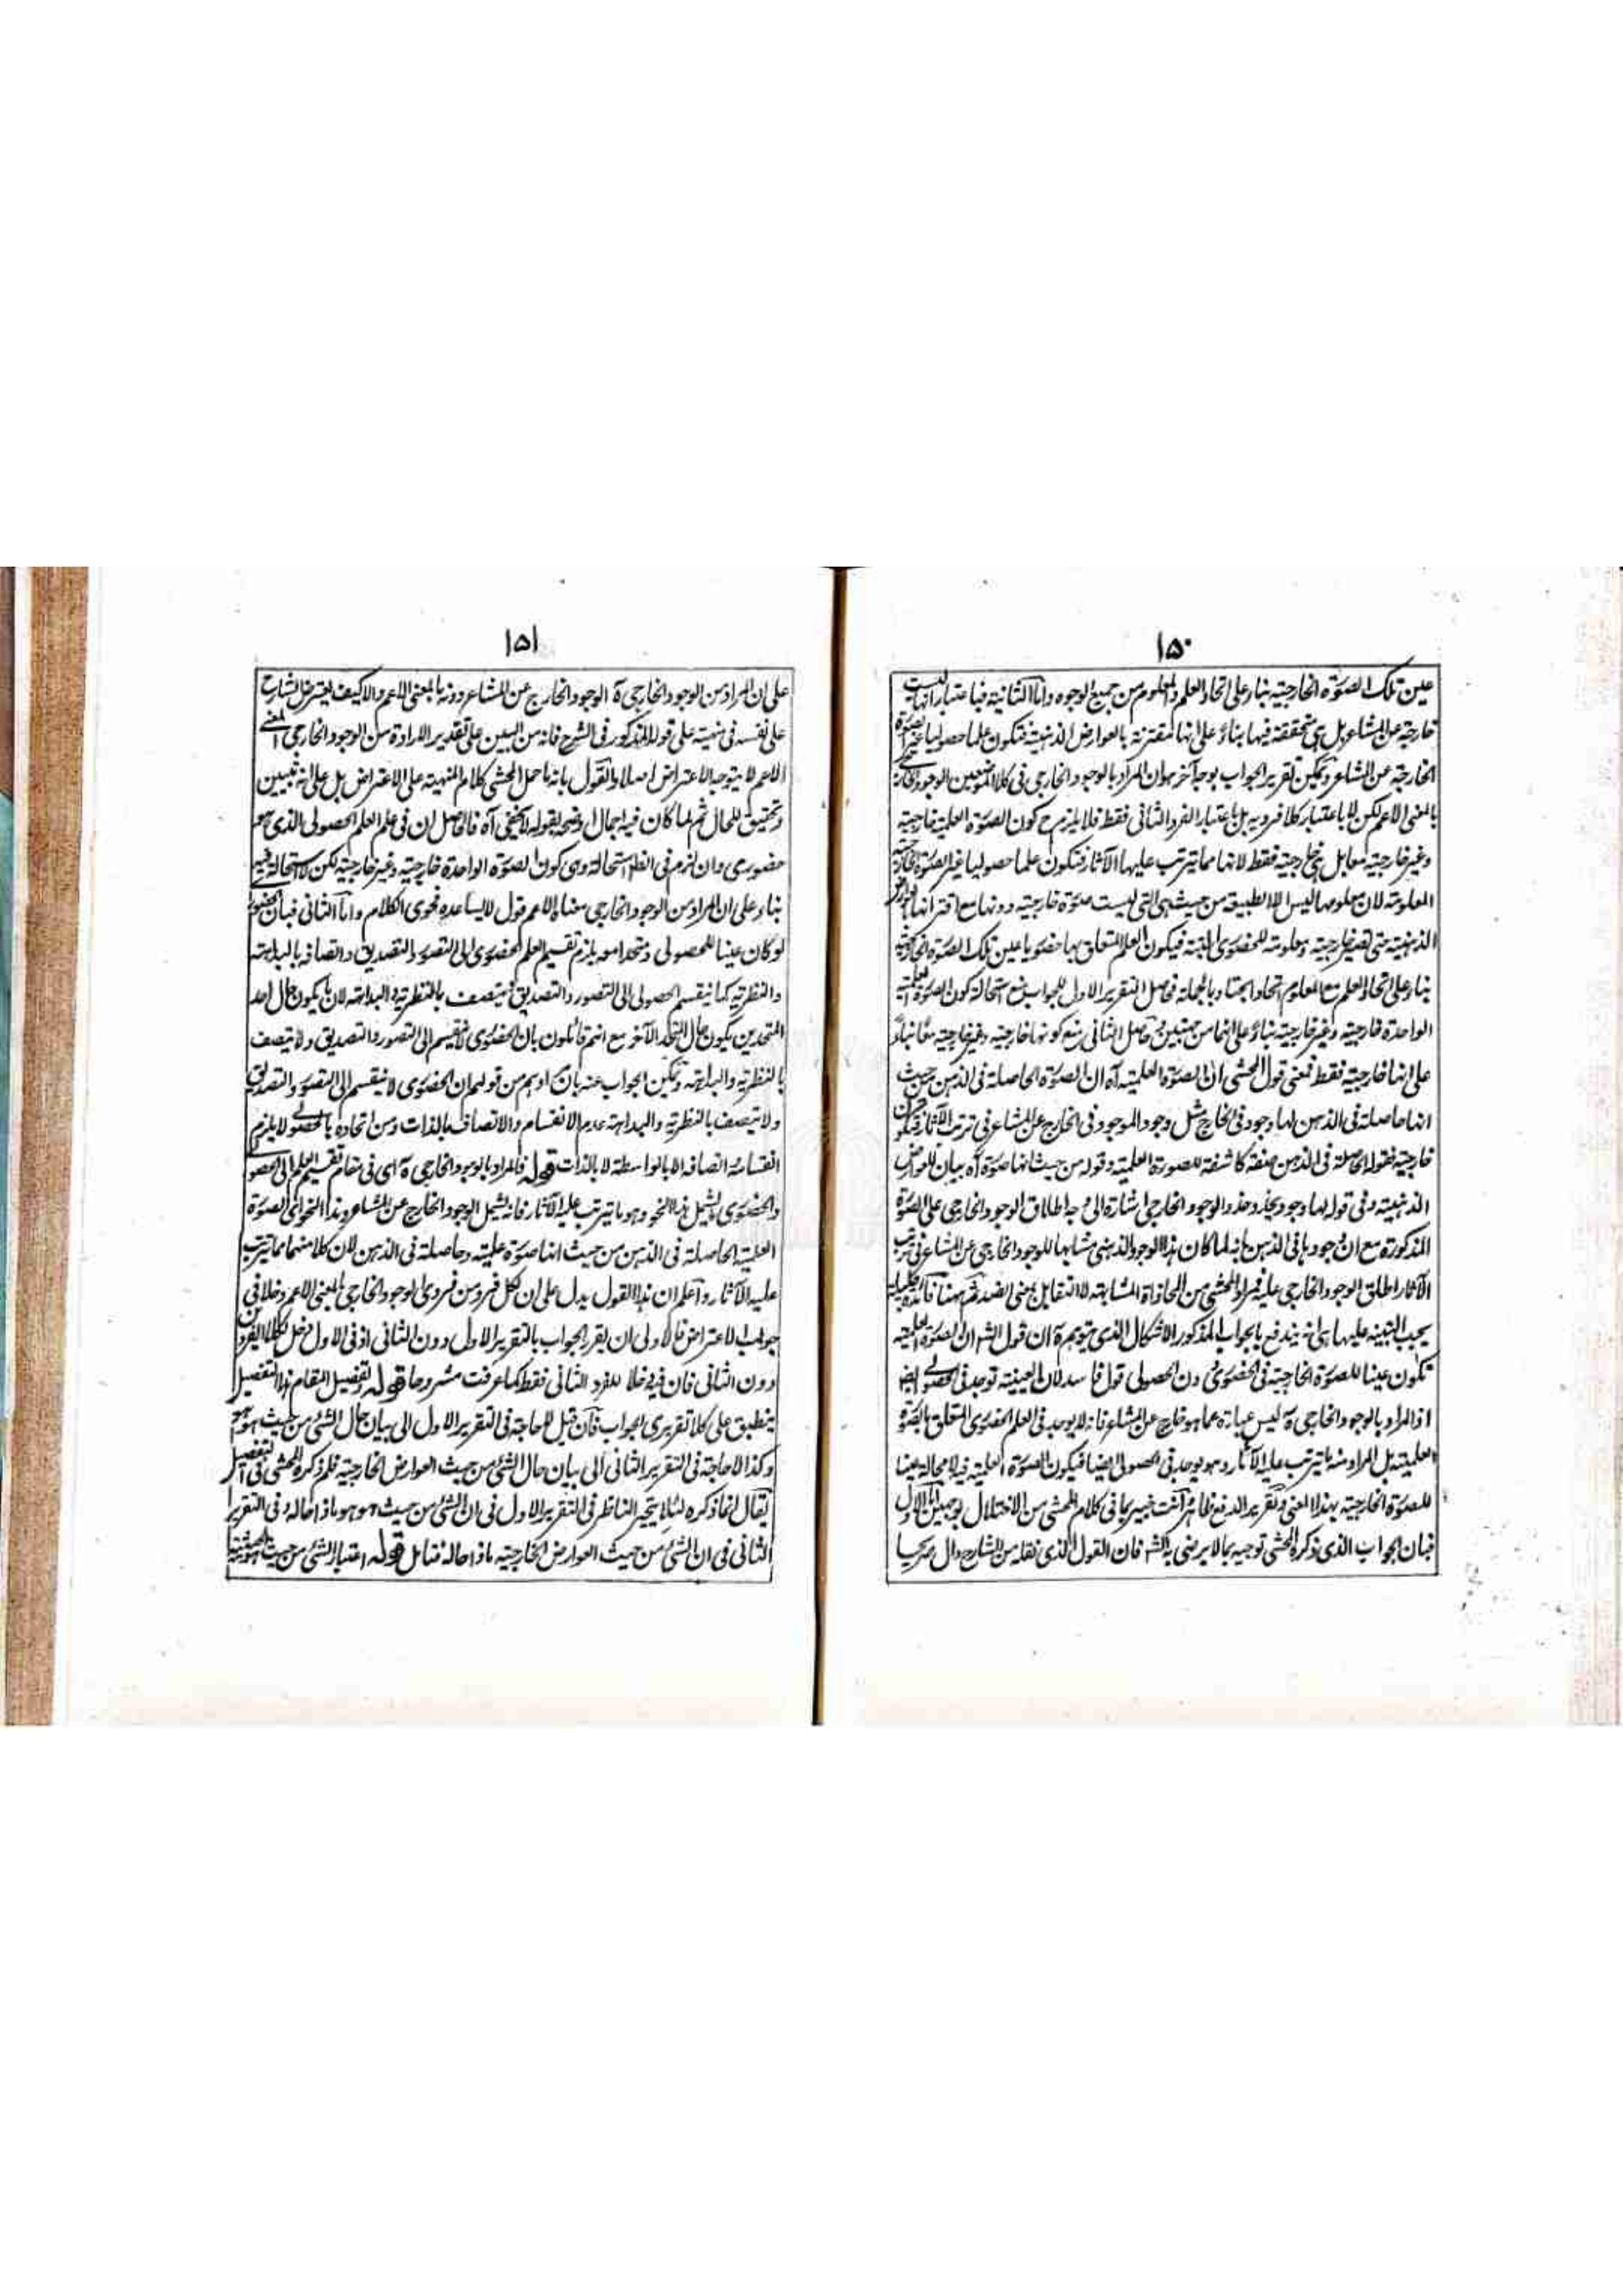 ١٥٠
عين تلك الصورة الخارجية بناء على اتحاد العلم والمعلوم من جميع الوجوه واما الثانية فباعتبار انها ليست
خارجة عن المشاعر بل هى متحققة فيها بناءً على انها مقترنة بالعوارض الذهنية فتكون علما حصوليا غير الصورة
الخارجة عن المشاعر ويمكن تقرير الجواب بوجه آخر هو ان المراد بالوجود الخارجى فى كلا الموضعين الوجود الخارجى
بالمعنى الاعم لكن لا باعتبار كلا فرديه بل باعتبار الفرد الثانى فقط فلا يلزم ح كون الصورة العلمية خارجية
وغير خارجية معا بل هى خارجية فقط لانها مما يترتب عليها الآثار فتكون علما حصوليا غير الصورة الخارجية
المعلومة لان معلومها ليس الا الطبيعة من حيث هى التى ليست صورة خارجية دونها مع اقترانها بالعوارض
الذهنية حتى تصير خارجية ومعلومة للحضورى البتة فيكون العلم المتعلق بها حضوريا عين تلك الصورة الخارجية
بناء على اتحاد العلم مع المعلوم اتحادا بحتا وبالجملة فحاصل التقرير الاول للجواب منع استحالة كون الصورة العلمية
الواحدة خارجية وغير خارجية بناءً على انهما من جهتين وحاصل الثانى منع كونها خارجية وغير خارجية معا بناءً
على انها خارجية فقط فمعنى قول المحشى ان الصورة العلمية آه ان الصورة الحاصلة فى الذهن من حيث
انها حاصلة فى الذهن لها وجود فى الخارج مثل وجود الموجود فى الخارج عن المشاعر فى ترتب الآثار فتكون
خارجية فقوله الحاصلة فى الذهن صفة كاشفة للصورة العلمية وقوله من حيث انها صورة آه بيان للعوارض
الذهنية وفى قوله لها وجود يحذو حذو الوجود الخارجى اشارة الى وجه اطلاق الوجود الخارجى على الصورة
المذكورة مع ان وجودها فى الذهن بانه لما كان هذا الوجود الذهنى مشابها للوجود الخارجى عن المشاعر فى ترتب
الآثار اطلق الوجود الخارجى عليه فمراد المحشى من المحاذاة المشابهة لا التقابل بمعنى الضد ثم ههنا فائدة جليلة
يجب التنبيه عليها هى انه يندفع بالجواب المذكور الاشكال الذى يتوهم ة ان قول الش ان الصورة العلمية
تكون عينا للصورة الخارجية فى الحضورى دون الحصولى قول فاسد لان العينية توجد فى الحصولى ايضا
اذ المراد بالوجود الخارجى ة ليس عبارة عما هو خارج عن المشاعر فانه لا يوجد فى العلم الحضورى المتعلق بالصورة
العلمية بل المراد منه ما يترتب عليه الآثار وهو يوجد فى الحصولى ايضا فيكون الصورة العلمية فيه لا محالة عينا
للصورة الخارجية بهذا المعنى وتقرير الدفع ظاهر وانت خبير بما فى كلام المحشى من الاختلال بوجهين اما الاول
فبان الجواب الذى ذكره المحشى توجيه بما لا يرضى به الش فان القول الذى نقله من الشارح دال صريحا
١٥١
على ان المراد من الوجود الخارجى ة الوجود الخارج عن المشاعر دونه بالمعنى الاعم والا كيف يعترض الشارح
على نفسه فى منهيته على قوله المذكور فى الشرح فانه من البين على تقدير الارادة من الوجود الخارجى المعنى
الاعم لا يتوجه الاعتراض اصلا والقول بانه ما حمل المحشى كلام المنهية على الاعتراض بل على انه تبيين
وتحقيق للحال ثم لما كان فيه اجمال اوضحه بقوله لا يخفى آه فالحاصل ان فى علم العلم الحصولى الذى هو
حضورى وان لزم فى الظاهر استحالة وهى كون الصورة الواحدة خارجية وغير خارجية لكن لا استحالة فيه
بناء على ان المراد من الوجود الخارجى معناه الاعم قول لا يساعده فحوى الكلام واما الثانى فبان الحضورى
لو كان عينا للحصولى ومتحدا معه يلزم تقسيم العلم الحضورى الى التصور والتصديق واتصافه بالبداهة
والنظرية كما ينقسم الحصولى الى التصور والتصديق ويتصف بالنظرية والبداهة لان ما يكون حال احد
المتحدين يكون حال المتحد الآخر مع انهم قائلون بان الحضورى لا ينقسم الى التصور والتصديق ولا يتصف
بالنظرية والبداهة ويمكن الجواب عنه بان مرادهم من قولهم ان الحضورى لا ينقسم الى التصور والتصديق
ولا يتصف بالنظرية والبداهة عدم الانقسام والاتصاف بالذات ومن اتحاده بالحصولى لا يلزم
انقسامه واتصافه الا بالواسطة لا بالذات قوله فالمراد بالوجود الخارجى ة اى فى مقام تقسيم العلم الى الحصولى
والحضورى ما يشمل هذا النحو وهو ما يترتب عليه الآثار فانه يشمل الوجود الخارج عن المشاعر وهذا النحو اى الصورة
العلمية الحاصلة فى الذهن من حيث انها صورة علمية وحاصلة فى الذهن لان كلا منهما مما يترتب
عليه الآثار واعلم ان هذا القول يدل على ان لكل فرد من فردى الوجود الخارجى بالمعنى الاعم دخلا فى
جواب الاعتراض فالاولى ان يقرر الجواب بالتقرير الاول دون الثانى اذ فى الاول دخل لكلا الفردين
دون الثانى فان فيه دخلا للفرد الثانى فقط كما عرفت مشروحا قوله وتفصيل المقام هذا التفصيل
ينطبق على كلا تقريرى الجواب فان قيل لا حاجة فى التقرير الاول الى بيان حال الشئ من حيث هو هو
وكذا لا حاجة فى التقرير الثانى الى بيان حال الشئ من حيث العوارض الخارجية فلم ذكره المحشى فى التفصيل
يقال انما ذكره لئلا يتحير الناظر فى التقرير الاول فى ان الشئ من حيث هو هو ماذا حاله وفى التقرير
الثانى فى ان الشئ من حيث العوارض الخارجية ماذا حاله فتامل قوله اعتبار الشئ من حيث